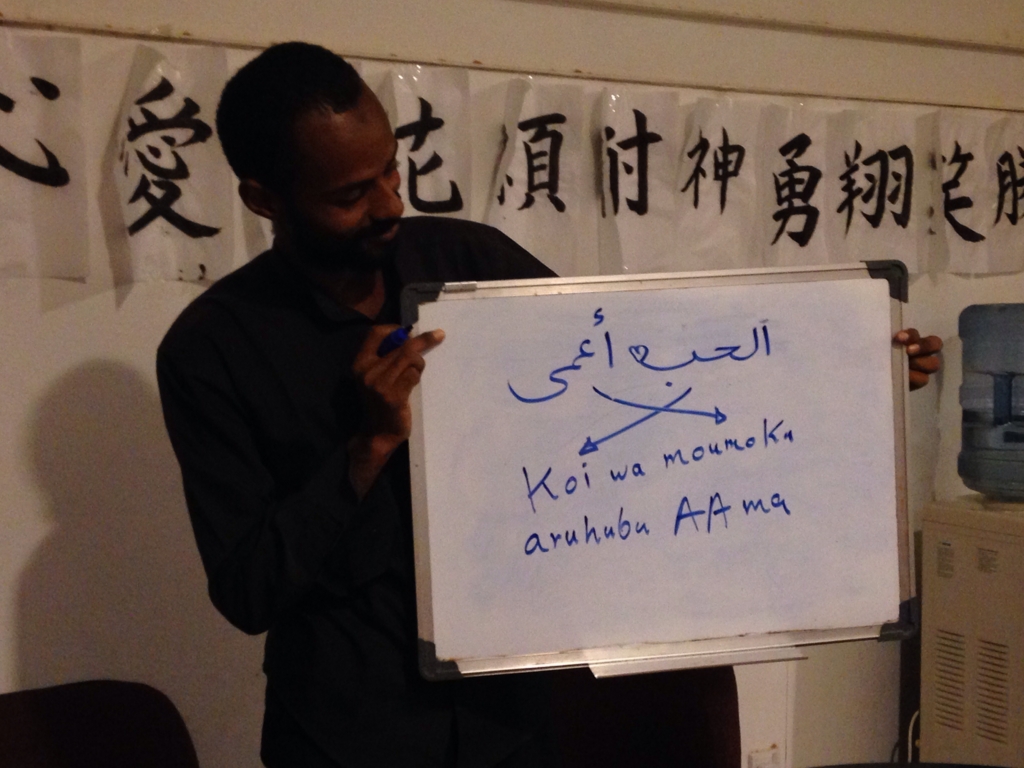 心 愛 花 須 付 神 勇 翔 笑 勝
الحب أعمى
Koi wa moumoku
aruhubu AA ma